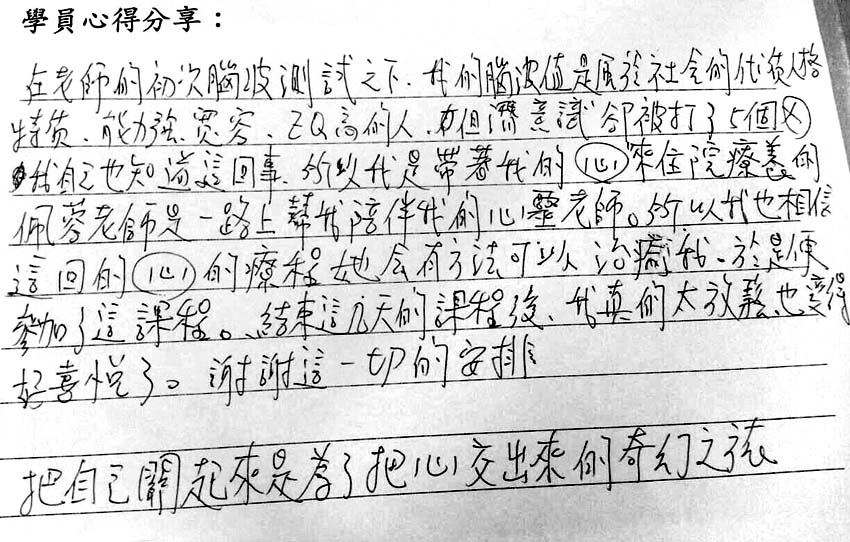 學員心得分享：
在老師的初次腦波測試之下、我的腦波值是屬於社會的優質人格
特質、能力強、寬容、EQ高的人、但潛意識卻被打了5個X
我自己也知道這回事、所以我是帶著我的心來住院療養的
佩蓉老師是一路上幫我陪伴我的心靈老師。所以我也相信
這回的心的療程她會有方法可以治癒我。於是便
參加了這課程。結束這几天的課程後、我真的太放鬆也變得
好喜悅了。謝謝這一切的安排
把自己關起來是為了把心交出來的奇幻之旅